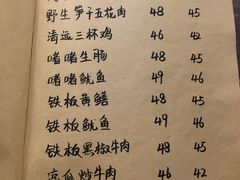 野生笋子五花肉 48 45
清远三杯鸡 46 42
啫啫生肠 48 45
啫啫鱿鱼 49 46
铁板黄鳝 48 45
铁板鱿鱼 49 46
铁板黑椒牛肉 48 45
凉瓜炒牛肉 46 42